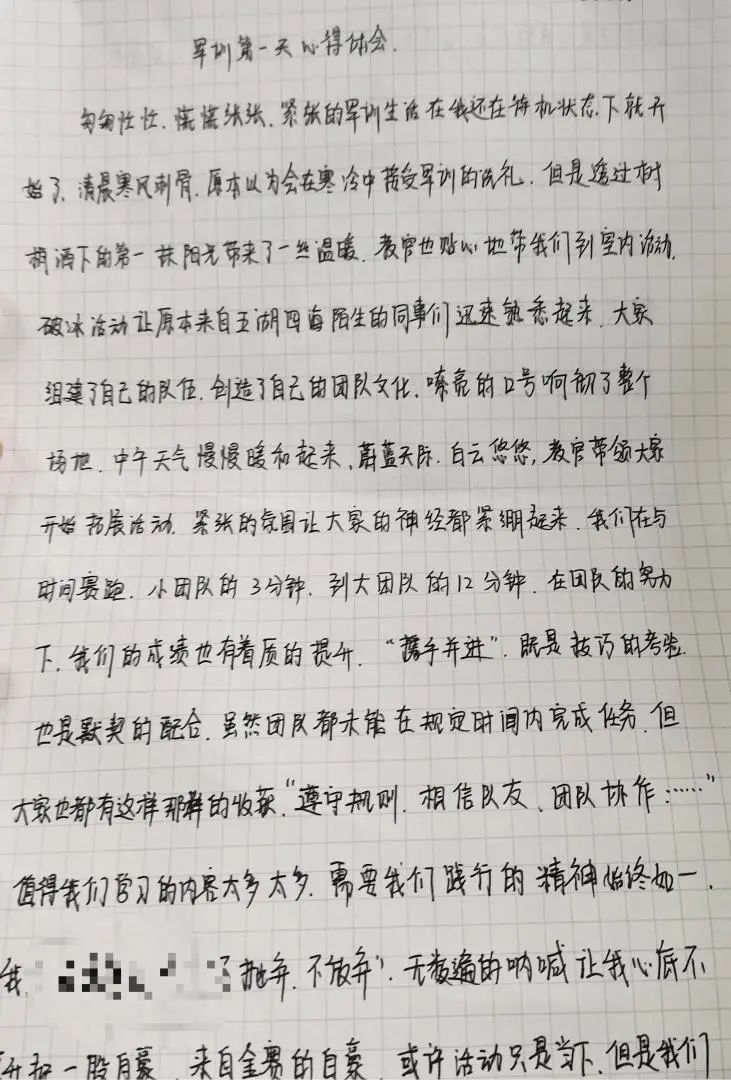 军训第一天心得体会.
匆匆忙忙、慌慌张张、紧张的军训生活在我还在待机状态下就开
始了.清晨寒风刺骨.原本以为会在寒冷中接受军训的洗礼.但是透过树
梢洒下的第一抹阳光带来了一丝温暖.教官也贴心地带我们到室内活动.
破冰活动让原本来自五湖四海陌生的同事们迅速熟悉起来.大家
组建了自己的队伍.创造了自己的团队文化.嘹亮的口号响彻了整个
场地.中午天气慢慢暖和起来,蔚蓝天际.白云悠悠,教官带领大家
开始拓展活动.紧张的氛围让大家的神经都紧绷起来.我们在与
时间赛跑.小团队的3分钟.到大团队的12分钟.在团队的努力
下.我们的成绩也有着质的提升.“携手并进”.既是技巧的考验.
也是默契的配合.虽然团队都未能在规定时间内完成任务.但
大家也都有这样那样的收获.“遵守规则.相信队友、团队协作:……”
值得我们学习的内容太多太多.需要我们践行的精神始终如一.
我. 抛弃.不放弃”.无数遍的呐喊让我心底不
升起一股自豪.来自金赛的自豪.或许活动只是当下.但是我们